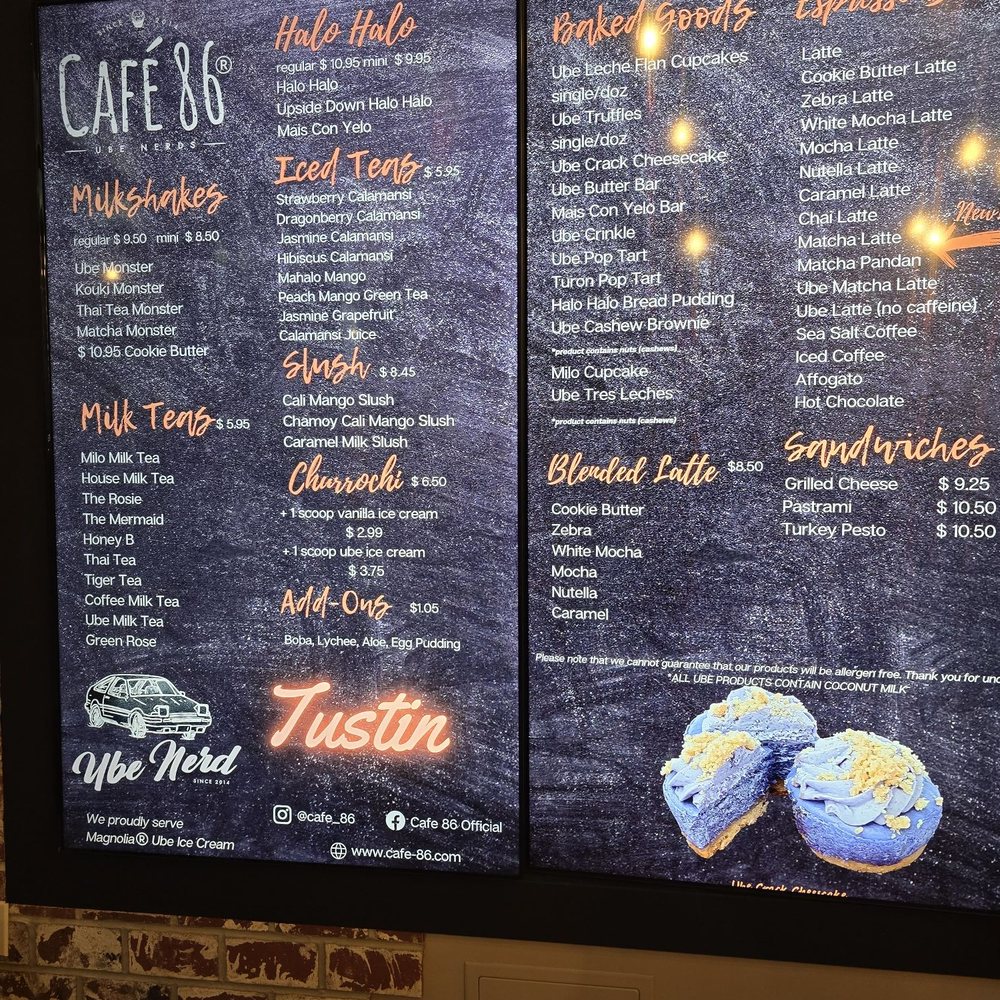 SINCE 2014
CAFÉ 86®
UBE NERDS
Milkshakes
regular $ 9.50 mini $ 8.50
Ube Monster
Kouki Monster
Thai Tea Monster
Matcha Monster
$ 10.95 Cookie Butter
Milk Teas $ 5.95
Milo Milk Tea
House Milk Tea
The Rosie
The Mermaid
Honey B
Thai Tea
Tiger Tea
Coffee Milk Tea
Ube Milk Tea
Green Rose
Ube Nerd
SINCE 2014
We proudly serve
Magnolia® Ube Ice Cream
Halo Halo
regular $ 10.95 mini $ 9.95
Halo Halo
Upside Down Halo Halo
Mais Con Yelo
Iced Teas $ 5.95
Strawberry Calamansi
Dragonberry Calamansi
Jasmine Calamansi
Hibiscus Calamansi
Mahalo Mango
Peach Mango Green Tea
Jasmine Grapefruit
Calamansi Juice
Slush $ 8.45
Cali Mango Slush
Chamoy Cali Mango Slush
Caramel Milk Slush
Churrochi $ 6.50
+ 1 scoop vanilla ice cream
$ 2.99
+ 1 scoop ube ice cream
$ 3.75
Add-Ons $1.05
Boba, Lychee, Aloe, Egg Pudding
Tustin
@cafe_86
Cafe 86 Official
www.cafe-86.com
Baked Goods
Ube Leche Flan Cupcakes
single/doz
Ube Truffles
single/doz
Ube Crack Cheesecake
Ube Butter Bar
Mais Con Yelo Bar
Ube Crinkle
Ube Pop Tart
Turon Pop Tart
Halo Halo Bread Pudding
Ube Cashew Brownie
*product contains nuts (cashews)
Milo Cupcake
Ube Tres Leches
*product contains nuts (cashews)
Blended Latte $8.50
Cookie Butter
Zebra
White Mocha
Mocha
Nutella
Caramel
Espresso
Latte
Cookie Butter Latte
Zebra Latte
White Mocha Latte
Mocha Latte
Nutella Latte
Caramel Latte
Chai Latte
New
Matcha Latte
Matcha Pandan
Ube Matcha Latte
Ube Latte (no caffeine)
Sea Salt Coffee
Iced Coffee
Affogato
Hot Chocolate
Sandwiches
Grilled Cheese $ 9.25
Pastrami $ 10.50
Turkey Pesto $ 10.50
Please note that we cannot guarantee that our products will be allergen free. Thank you for
*ALL UBE PRODUCTS CONTAIN COCONUT MILK*
Ube Crack Cheesecake